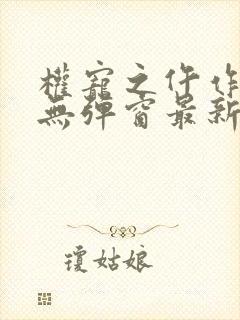 權寵之仵作
無彈窗最新
瓊姑娘